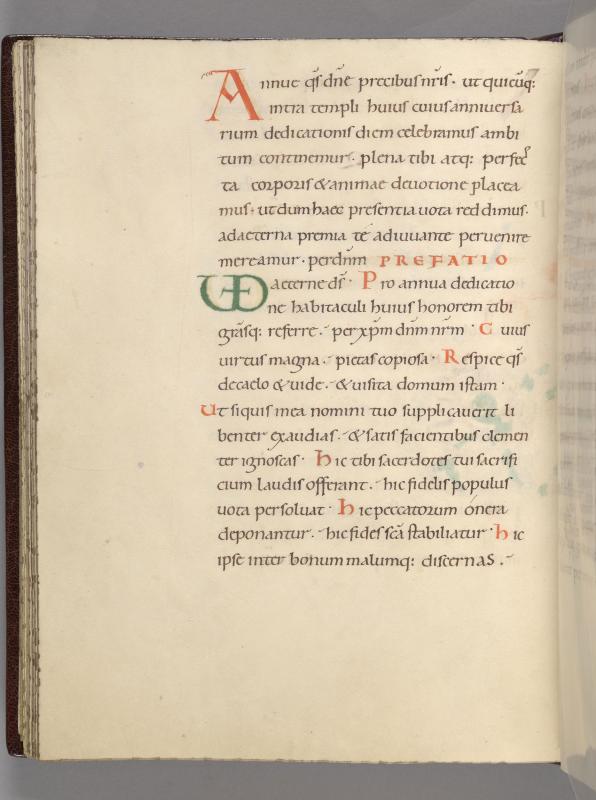 Annue qs̄ dn̄e precibus nr̄is. ut quicūq:
intra templi huius cuius anniuersa
rium dedicationis diem celebramus ambi
tum continemur. plena tibi atq: perfec
ta corporis & animae deuotione placea
mus. ut dum haec presentia uota reddimus.
ad aeterna premia te adiuuante peruenire
mereamur. per dn̄m PREFATIO
VD aeterne ds̄. Pro annua dedicatio
ne habitaculi huius honorem tibi
grās q: referre. per xp̄m dn̄m nr̄m. Cuius
uirtus magna. pietas copiosa. Respice qs̄
de caelo & uide. & uisita domum istam.
Ut siquis in ea nomini tuo supplicauerit li
benter exaudias. & satisfacientibus clemen
ter ignoscas. hic tibi sacerdotes tui sacrifi
cium laudis offerant. hic fidelis populus
uota persoluat. hic peccatorum onera
deponantur. hic fides sc̄a stabiliatur. hic
ipse inter bonum malumq: discernas.